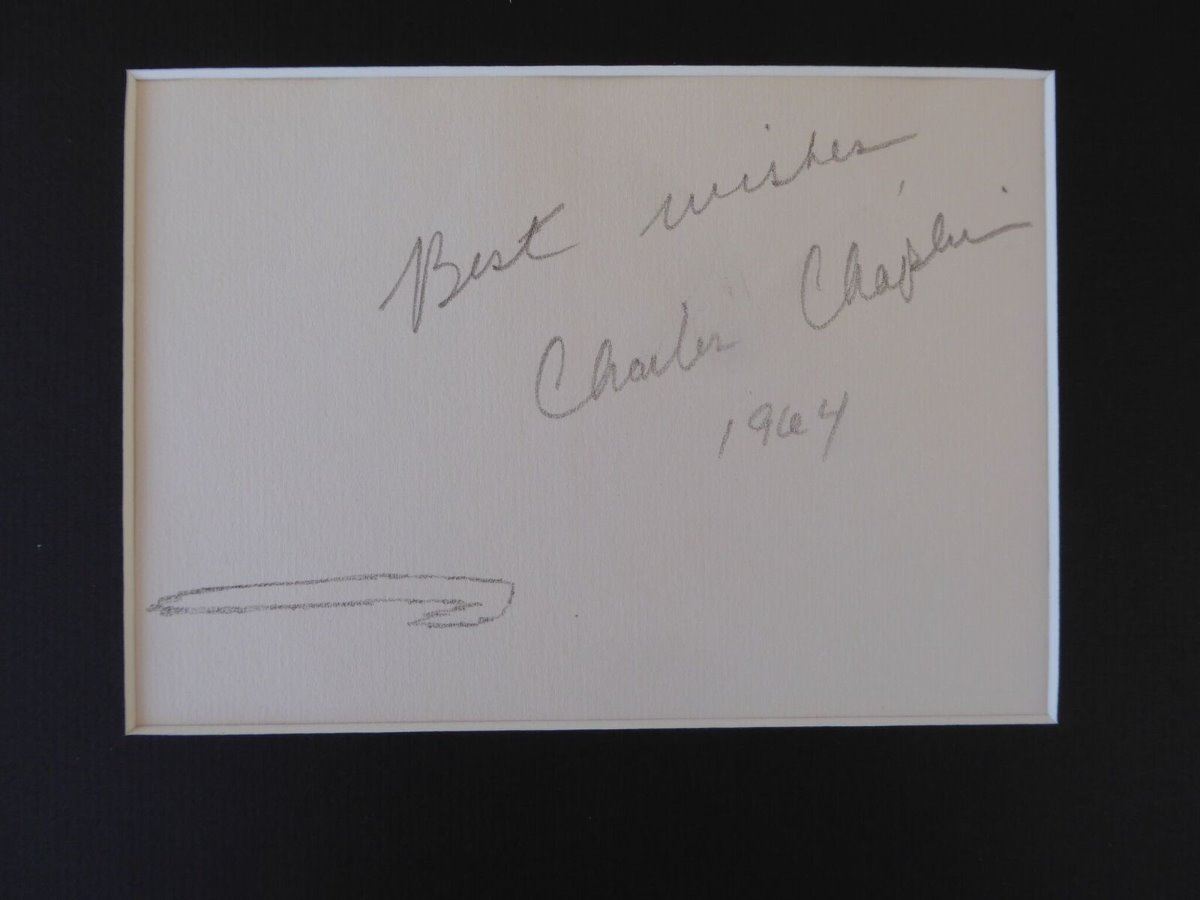 Best wishes
Charles Chaplin
1964